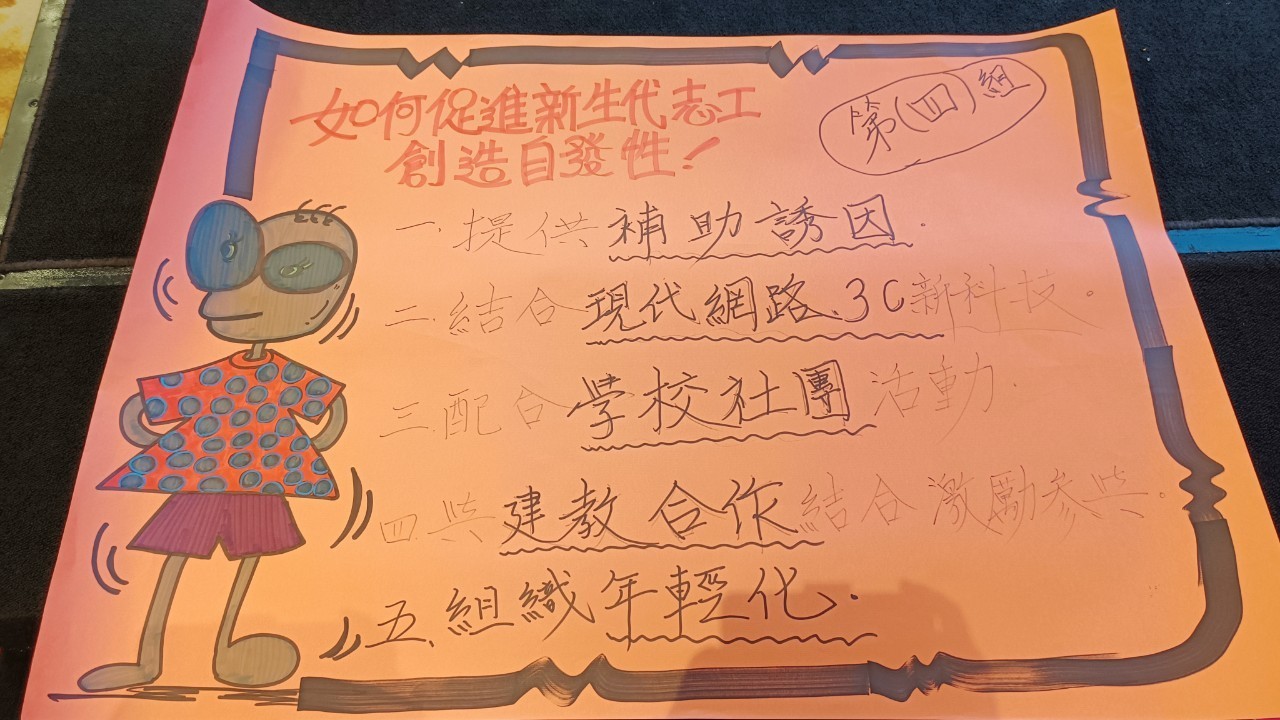 如何促進新生代志工
創造自發性！
第(四)組
一.提供補助誘因.
二.結合現代網路、3C新科技。
三.配合學校社團活動.
四.與建教合作結合激勵參與。
五、組織年輕化.